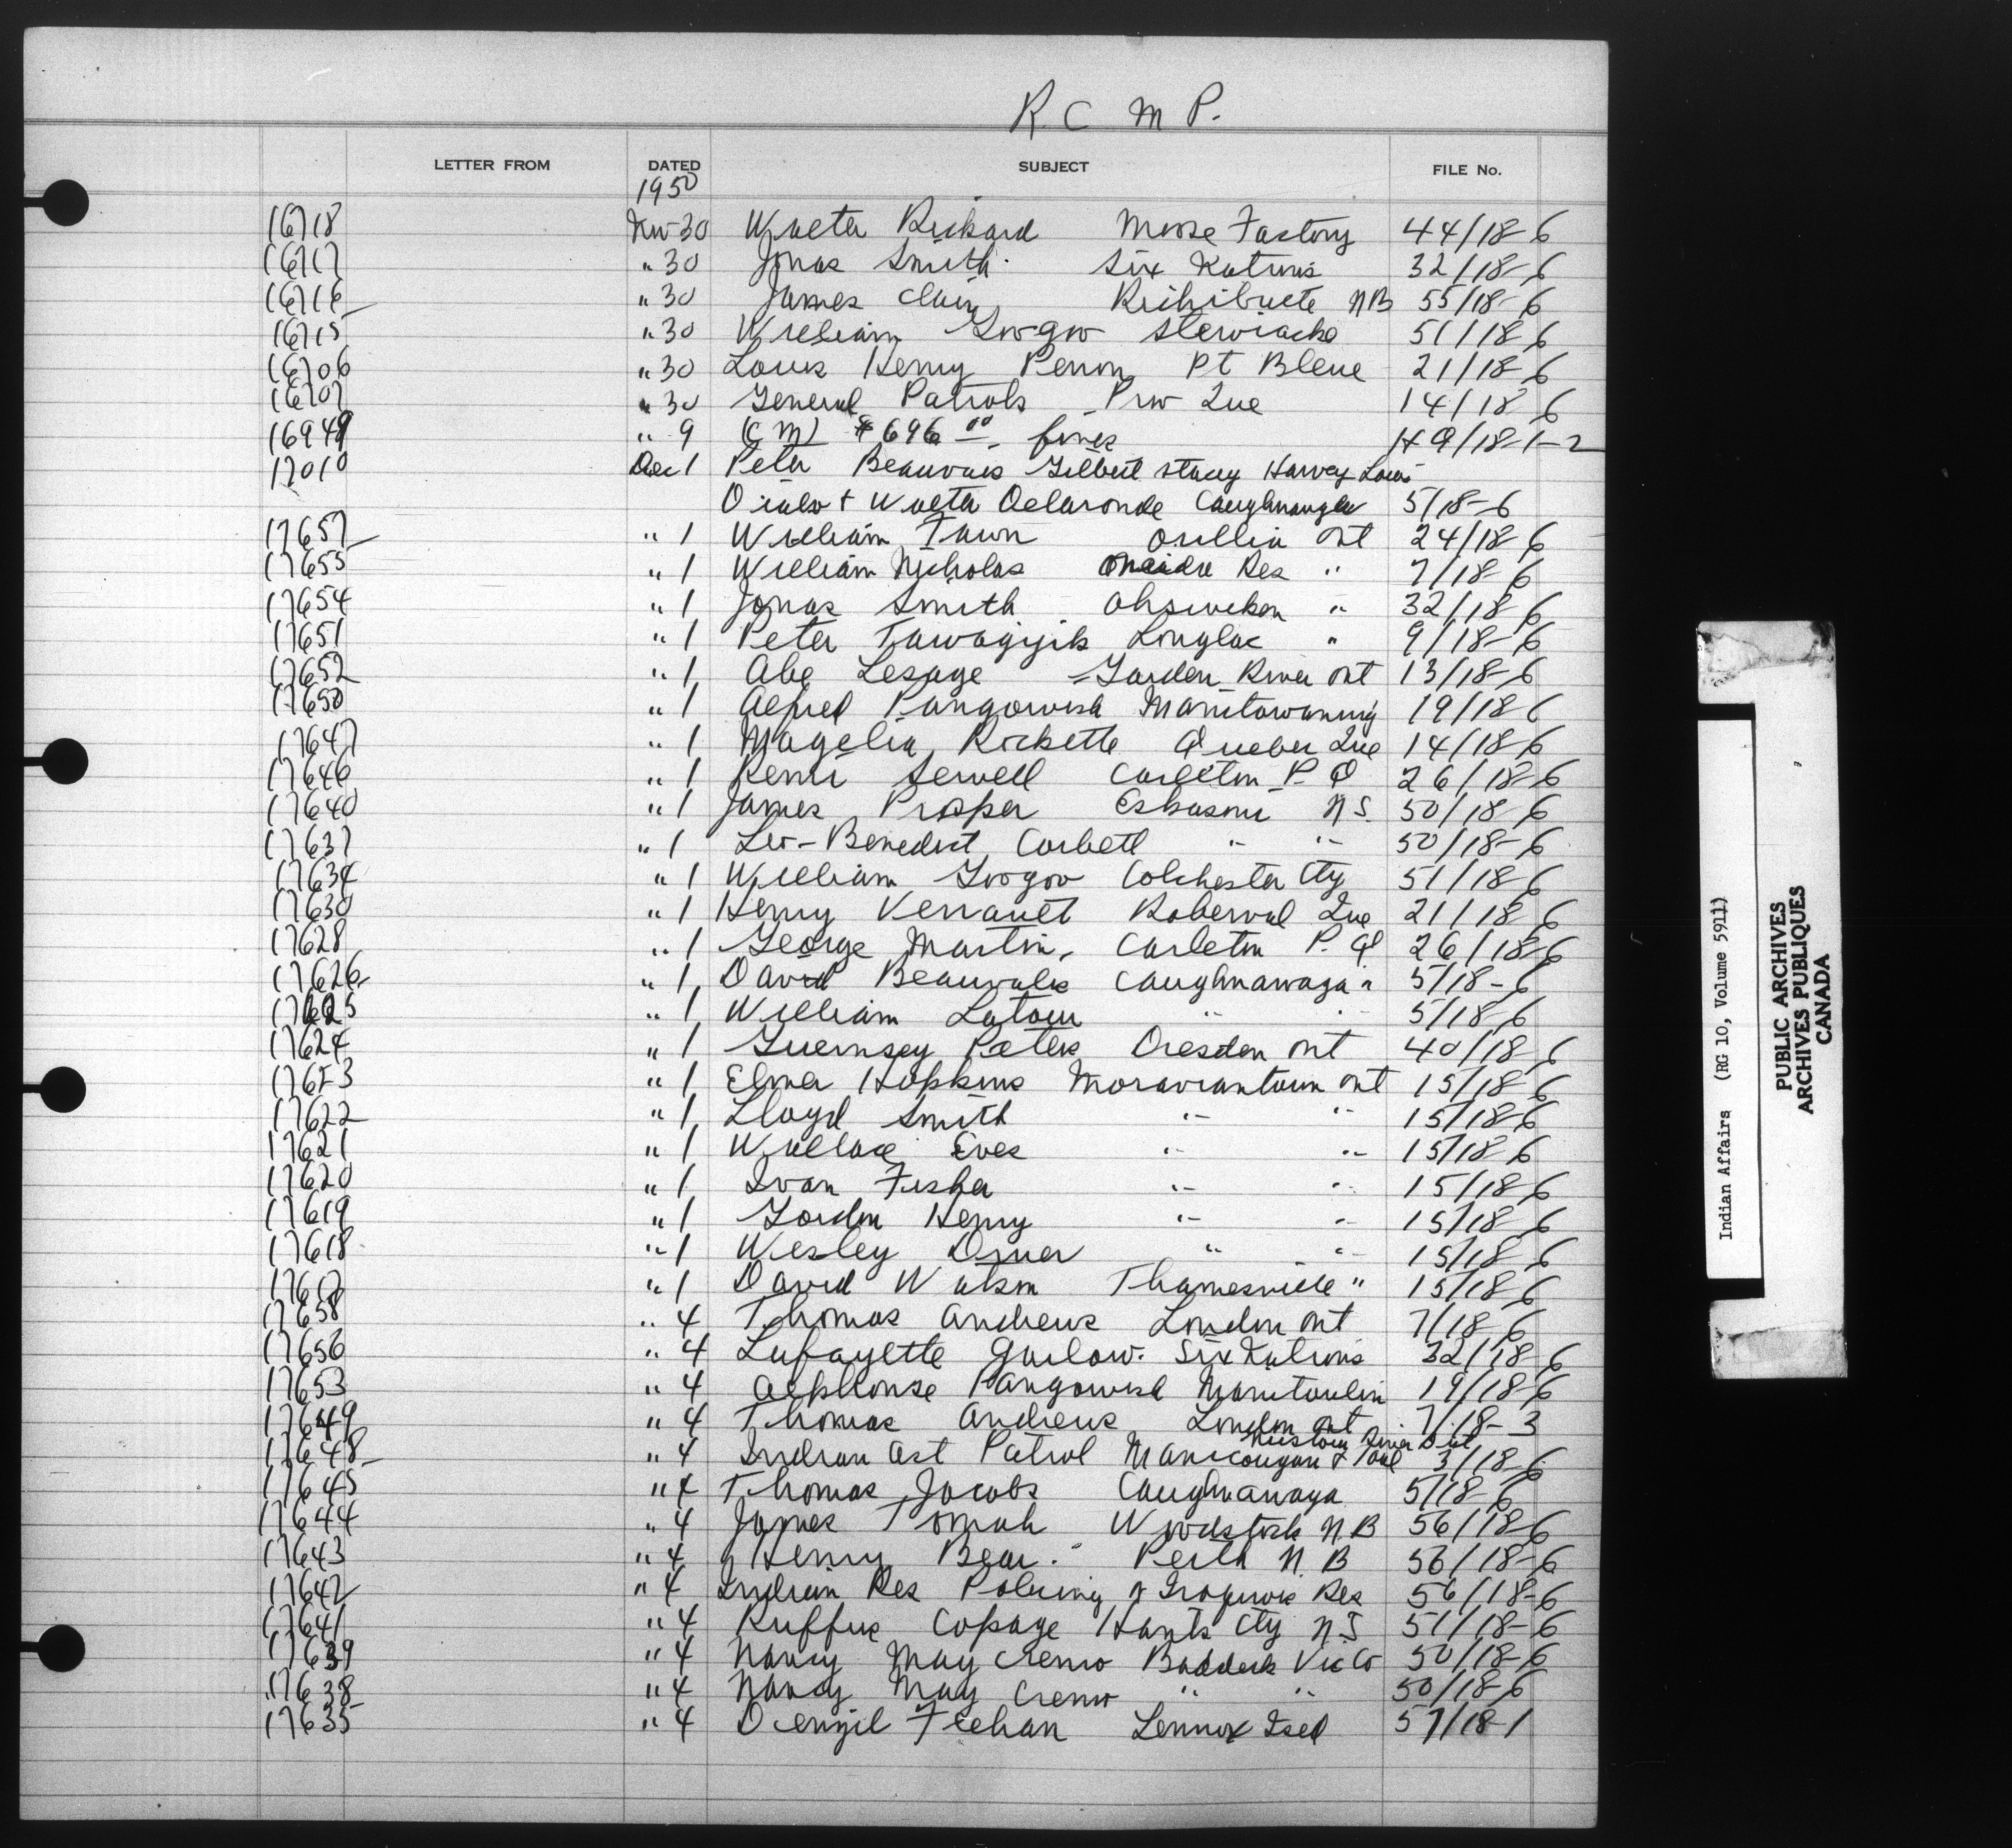 R. C M P.
LETTER FROM DATED SUBJECT FILE No.
1950
16718 Nov 30 Walter Rickard Moose Factory 44/18-6
16717 " 30 Jonas Smith Six Nations 32/18-6
16716 " 30 James Clair Richibucto NB 55/18-6
16715 " 30 William Googoo Stewiacke 51/18-6
16706 " 30 Louis Henry Peron Pt Bleue 21/18-6
16707 " 30 General Patrols Prov Que 14/18-6
16949 " 9 (CM) $696 00 fines 49/18-1-2
17010 Dec 1 Peter Beauvais Gilbert Stacy Harvey Louis
& Walter Delaronde Caughnawaga 5/18-6
17657 " 1 William Fawn Orillia Ont 24/18-6
17655 " 1 William Nicholas Oneida Res " 7/18-6
17654 " 1 Jonas Smith Ohsweken " 32/18-6
17651 " 1 Peter Tawagijik Longlac " 9/18-6
17652 " 1 Abe Lesage Garden River Ont 13/18-6
17650 " 1 Alfred Pangowish Manitowaning 19/18-6
17647 " 1 Magelia Rickette Quebec Que 14/18-6
17646 " 1 Remi Sewell Carleton P. Q 26/18-6
17640 " 1 James Prosper Eskasoni N S. 50/18-6
17637 " 1 Leo-Benedict Corbett " " 50/18-6
17634 " 1 William Googoo Colchester Cty 51/18-6
17630 " 1 Henry Verrault Roberval Que 21/18-6
17628 " 1 George Martin, Carleton P. Q 26/18-6
17626 " 1 David Beauvais Caughnawaga " 5/18-6
17625 " 1 William Latour " " 5/18-6
17624 " 1 Guernsey Peters Dresden Ont 40/18-6
17623 " 1 Elmer Hopkins Moraviantown Ont 15/18-6
17622 " 1 Lloyd Smith " " 15/18-6
17621 " 1 Wallace Eves " " 15/18-6
17620 " 1 Ivan Fisher " " 15/18-6
17619 " 1 Gordon Henry " " 15/18-6
17618 " 1 Wesley Omer " " 15/18-6
17617 " 1 David Watson Thamesville " 15/18-6
17658 " 4 Thomas Andrews London Ont 7/18-6
17656 " 4 Lafayette Garlow. Six Nations 32/18-6
17653 " 4 Alphonse Pangowish Manitoulin 19/18-6
17649 " 4 Thomas Andrews London Ont 7/18-3
17648 " 4 Indian Act Patrol Manicougan & 3/18-6
17645 " 4 Thomas Jacobs Caughnawaga 5/18-6
17644 " 4 James Tomah Woodstock N B 56/18-6
17643 " 4 Henry Bear. Perth N. B 56/18-6
17642 " 4 Indian Res Policing of Iroquois Res 56/18-6
17641 " 4 Ruffus Copage Hants Cty N S 51/18-6
17639 " 4 Nancy May Cremo Baddeck Vic Co 50/18-6
17638 " 4 Nancy May Cremo " " 50/18-6
17635 " 4 Denzil Feehan Lennox Isld 57/18-1
Indian Affairs (RG 10, Volume 5911)
PUBLIC ARCHIVES
ARCHIVES PUBLIQUES
CANADA